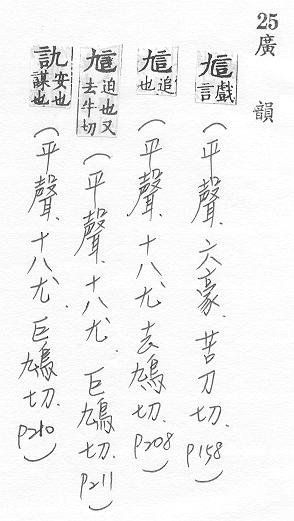 25廣韻
訄戲言（平聲.六豪.苦刀切.P158）
訄追也（平聲.十八尤.去鳩切.P208）
訄迫也又去牛切（平聲.十八尤.巨鳩切.P211）
訅安也謀也（平聲.十八尤.巨鳩切.P210）